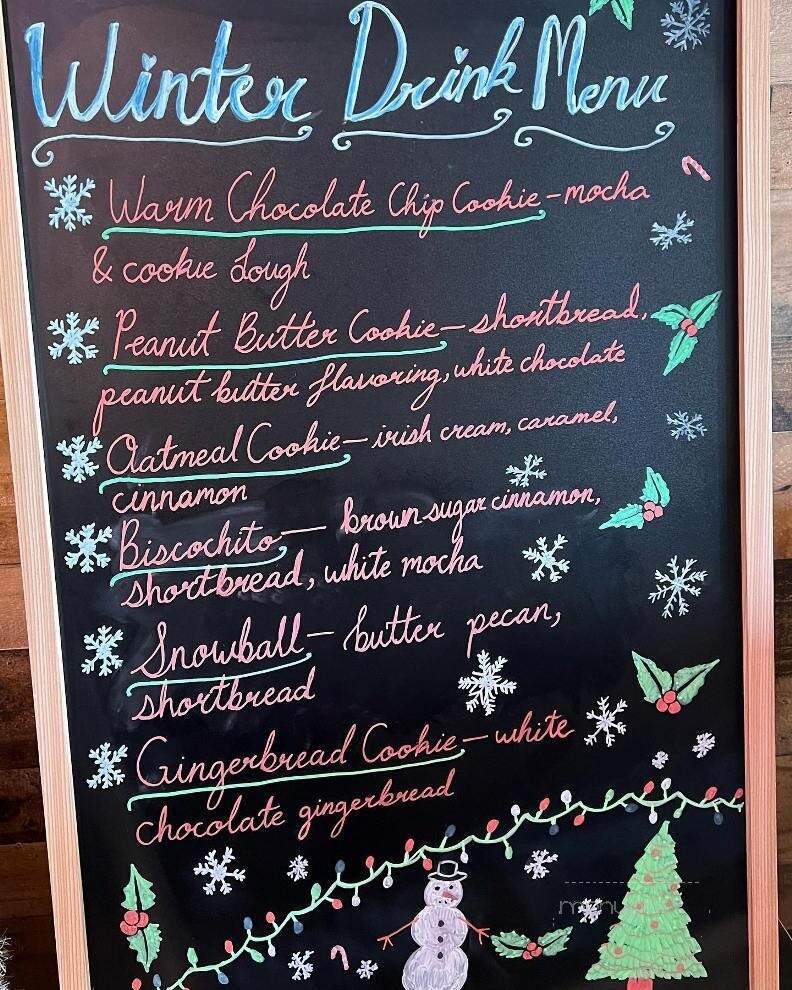 Winter Drink Menu
Warm Chocolate Chip Cookie - mocha
& cookie dough
Peanut Butter Cookie - shortbread,
peanut butter flavoring, white chocolate
Oatmeal Cookie - irish cream, caramel,
cinnamon
Biscochito - brown sugar cinnamon,
shortbread, white mocha
Snowball - butter pecan,
shortbread
Gingerbread Cookie - white
chocolate gingerbread